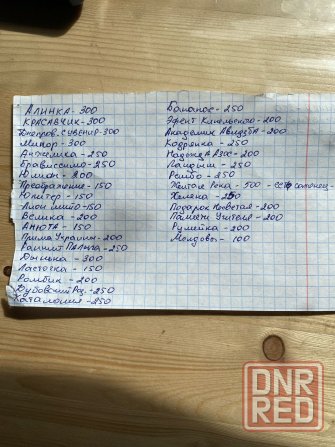 АЛИНКА - 300
КРАСАВЧИК - 300
Днепров. сувенир - 300
Минор - 300
Анжелика - 250
Брависсимо - 250
Юлиан - 200
Преображение - 150
Юпитер - 150
Велика - 200
АНЮТА - 150
Прима Украины - 200
Ранний Пальца - 250
Дынька - 300
Ласточка - 150
Ромбик - 200
Дубовский Роз. - 250
Каталония - 250
Бананос - 250
Эффект Кишельского - 200
Академик Авидзба - 200
Кодрянка - 250
Надежда АЗОС - 200
Ландыш - 250
Рембо - 250
Желтая река - 500 -
Хелена - 250
Подарок Несветая - 200
Памяти Учителя - 200
Румейка - 200
Молдова - 100
DNR
RED